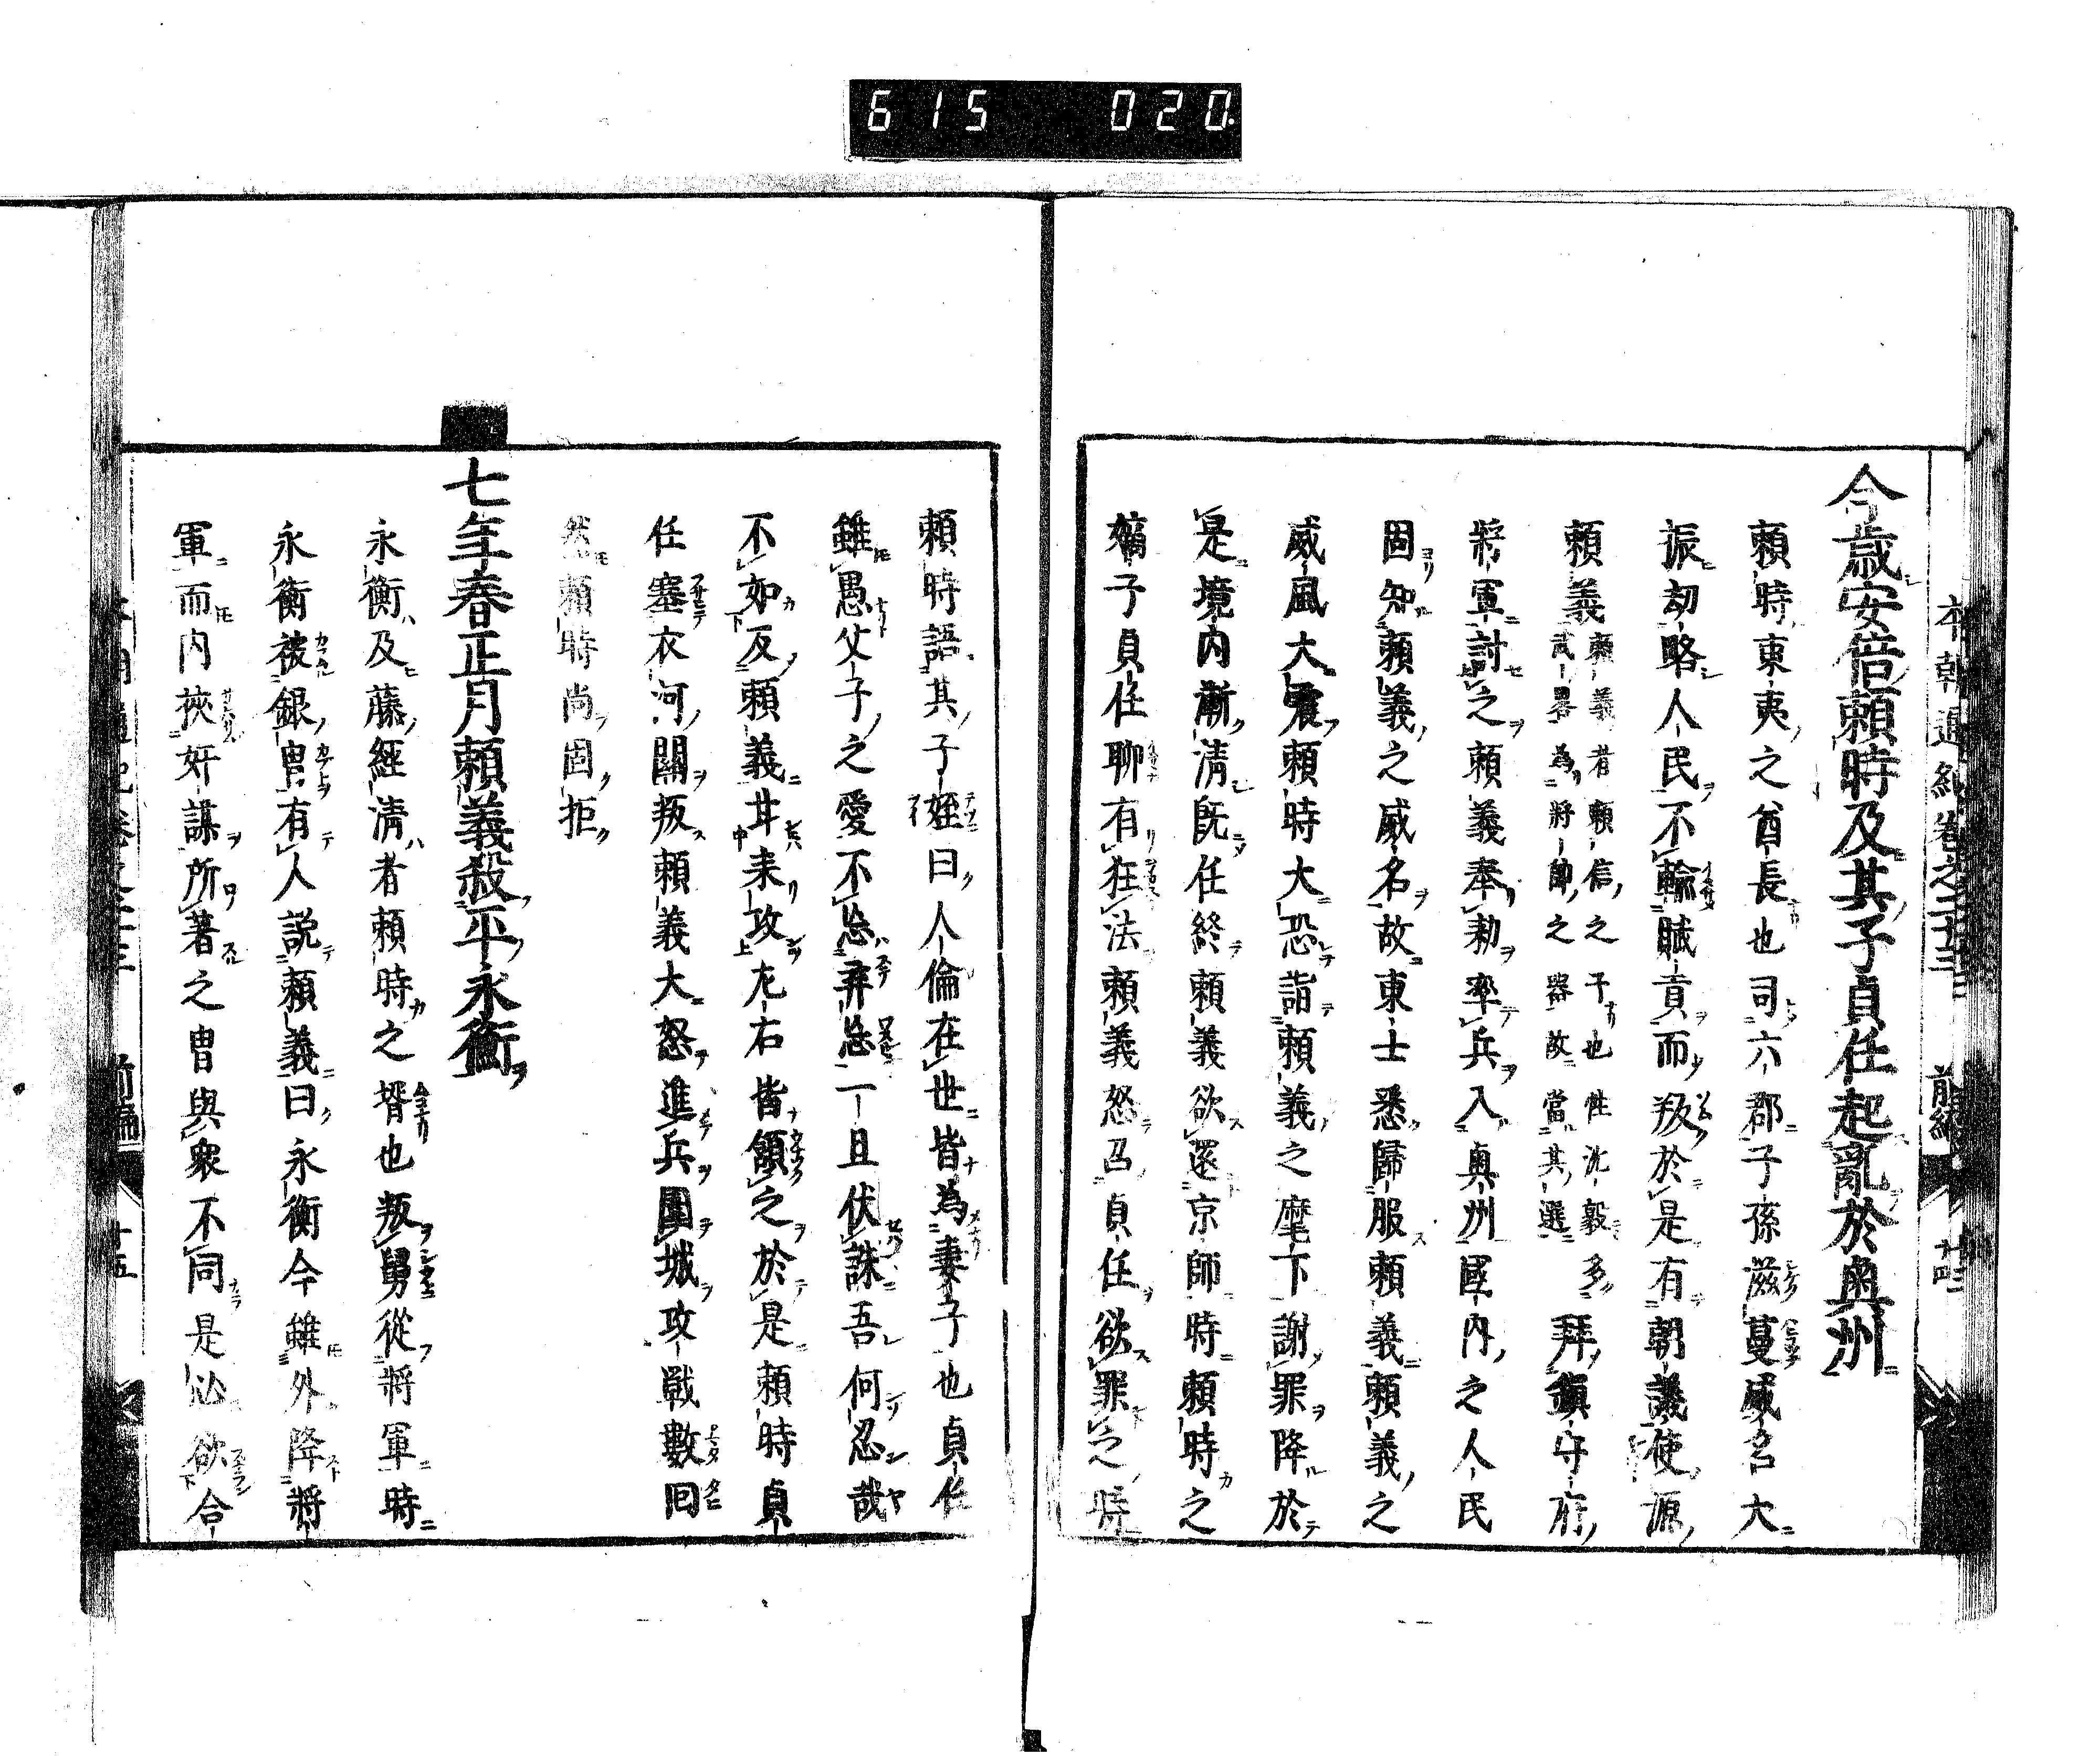 615 020
本朝通紀卷之二十三 前編 廿四
今歳安倍頼時及其子貞任起亂於奥州
頼時東夷之酋長也司六郡子孫滋蔓威名大
振劫略人民不輸賦貢而叛於是有朝議使源
頼義頼義者頼信之子也性沈毅多武畧為將帥之器故當其選拜鎭守府
將軍討之頼義奉勅率兵入奥州國内之人民
固知頼義之威名故東士悉歸服頼義頼義之
威風大震頼時大恐詣頼義之麾下謝罪降於
是境内漸清既任終頼義欲還京師時頼時之
嫡子貞任聊有狂法頼義怒召貞任欲罪之時
頼時語其子姪曰人倫在世皆為妻子也貞任
雖愚父子之愛不忘弃忘一旦伏誅吾何忍哉
不如反頼義廿来攻左右皆頷之於是頼時貞
任塞衣河關叛頼義大怒進兵圍城攻戰數回
然頼時尚固拒
七年春正月頼義殺平永衡
永衡及藤經清者頼時之壻也叛舅從將軍時
永衡被銀冑有人説頼義曰永衡今雖外降將
軍而内挾奸謀所著之冑與衆不同是必欲合